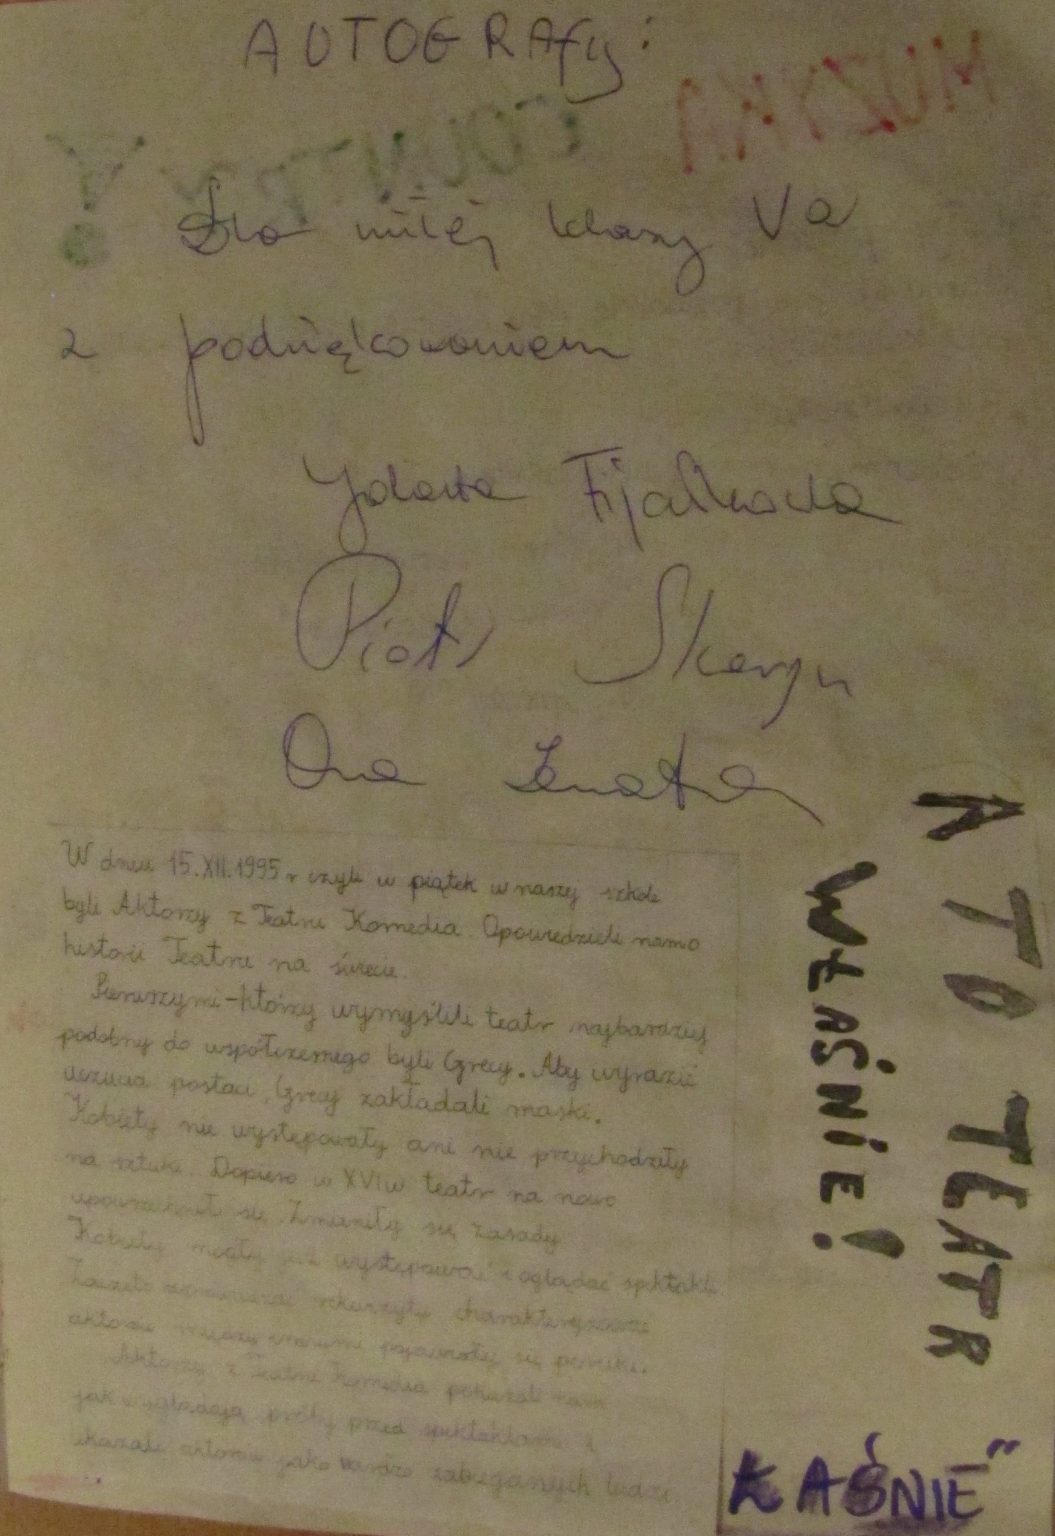 AUTOGRAfy:
MUZYKA
COUNTRY!
Dla miłej klasy Va
z podziękowaniem
Jolanta Fijałkowska
Piotr
Ona
W dniu 15.XII.1995 r czyli w piątek w naszej szkole
byli Aktorzy z Teatru Komedia. Opowiedzieli namo
historii Teatru na świecie.
Pierwszymi-którzy wymyślili teatr najbardziej
podobny do współczesnego byli Grecy. Aby wyrazić
uczucia postaci, Grecy zakładali maski.
Kobiety nie występowały ani nie przychodziły
na sztuki. Dopiero w XVIw teatr na nowo
się. Zmieniły się zasady
Kobiety mogły już występować i oglądać spektakle.
charakteryzować
aktorów między innymi pojawiały się peruki.
Aktorzy z Teatru Komedia pokazali nam
jak wyglądają próby przed spektaklami i
ukazali aktorów jako bardzo zabieganych ludzi
A TO TEATR
WŁAŚNIE!
ŁAŚNIE"